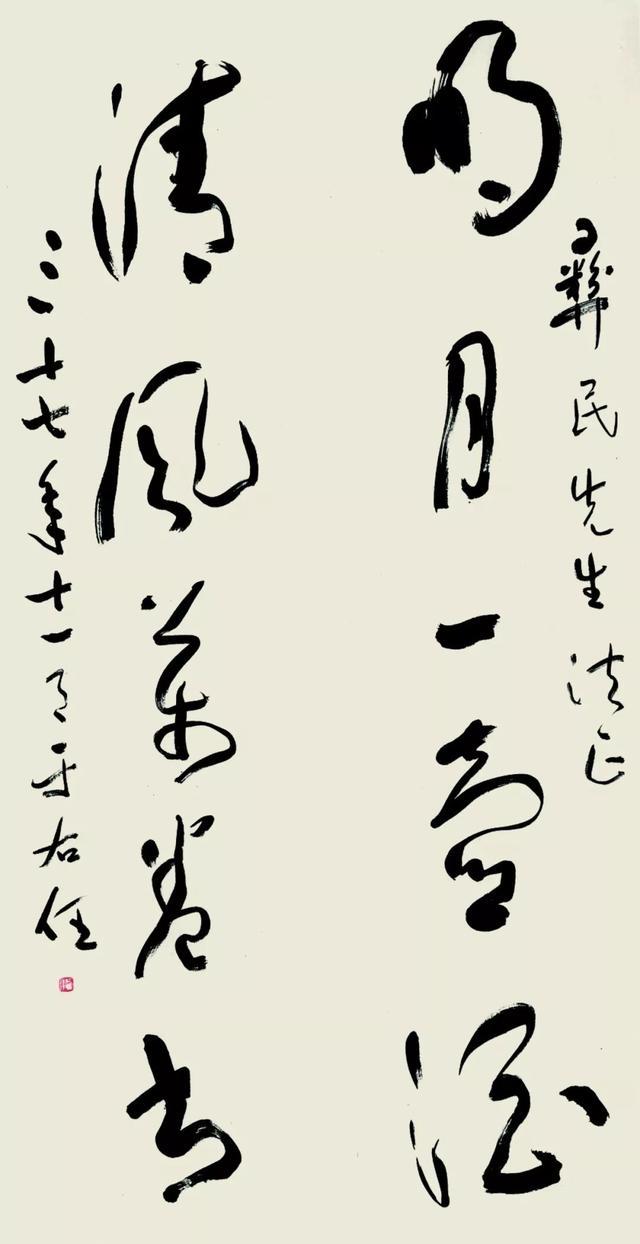 彝民先生法正
明月一壺酒
清風萬卷書
三十七年十一月于右任